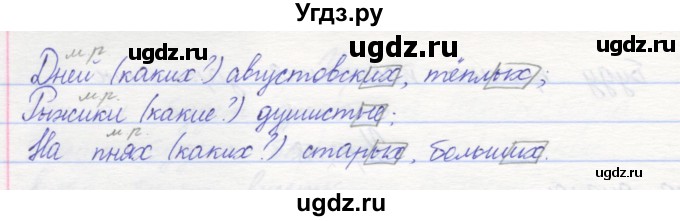 Угдз.ру
м.р.
Дней (каких?) августовских, тёплых;
м.р.
Рыжики (какие?) душистые;
м.р.
На пнях (каких?) старых, больших.
ugdz.ru ugdz.ru ugdz.ru
ugdz.ru ugdz.ru
ugdz.ru ugdz.ru ugdz.ru